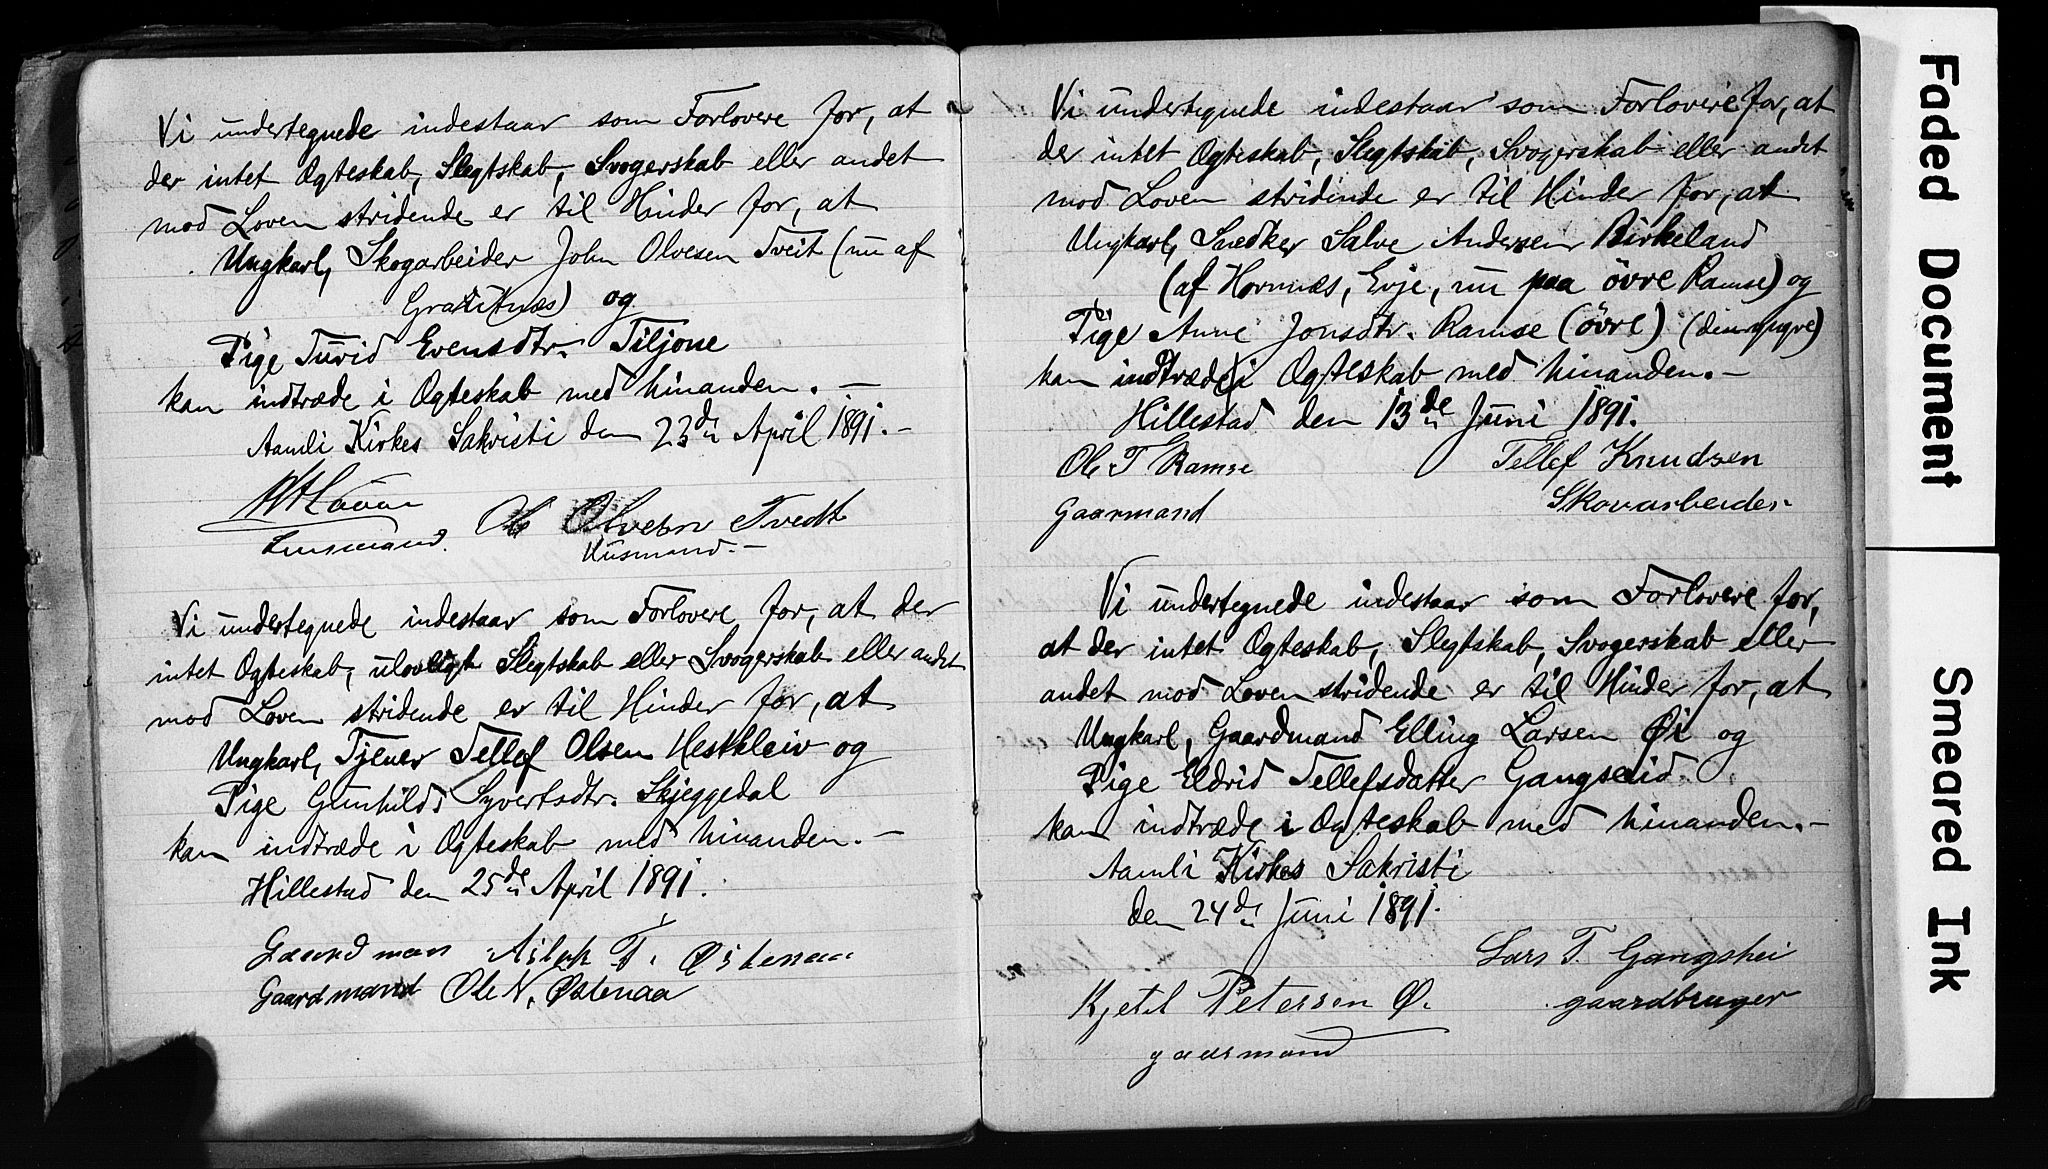 Vi undertegnede indestaar som Forlovere for, at
der intet Ægteskab, Slegtskab, Svogerskab eller andet
mod Loven stridende er til Hinder for, at
Ungkarl, Skogarbeider John Olvesen Tveit (nu af
og
Pige Turid Evensdtr. Tiljone
kan indtræde i Ægteskab med hinanden. —
Aamli Kirkes Sakristi den 23de April 1891. —
Lensmand. Ole Olvesen Tvedt
Husmand. —
Vi undertegnede indestaar som Forlovere for, at der
intet Ægteskab, ulovligt Slegtskab eller Svogerskab eller andet
mod Loven stridende er til Hinder for, at
Ungkarl, Tjener Tellef Olsen Hestkleiv og
Pige Gunhild Syvertsdtr. Skjeggedal
kan indtræde i Ægteskab med hinanden. —
Hillestad den 25de April 1891.
Gaardman Aslak T. Østenaa
Gaardmand Ole N. Østenaa
Vi undertegnede indestaar som Forlovere for, at
der intet Ægteskab, Slegtskab, Svogerskab eller andet
mod Loven stridende er til Hinder for, at
Ungkarl, Snedker Salve Andersen Birkeland
(af Hornnæs, Evje, nu paa övre Ramse) og
Pige Anne Jonsdtr. Ramse (övre) (den yngre)
kan indtræde i Ægteskab med hinanden. —
Hillestad den 13de Juni 1891.
Ole T Ramse Tellef Knudsen
Gaarmand Skovarbeider
Vi undertegnede indestaar som Forlovere for,
at der intet Ægteskab, Slegtskab, Svogerskab eller
andet mod Loven stridende er til Hinder for, at
Ungkarl, Gaardmand Elling Larsen Øi og
Pige Eldrid Tellefsdatter Gangseid
kan indtræde i Ægteskab med hinanden. —
Aamli Kirkes Sakristi
den 24de Juni 1891.
Lars T. Gangshei
Kjetil Petersen Ø. gaardbruger
gaarmand
Faded Document
Smeared Ink